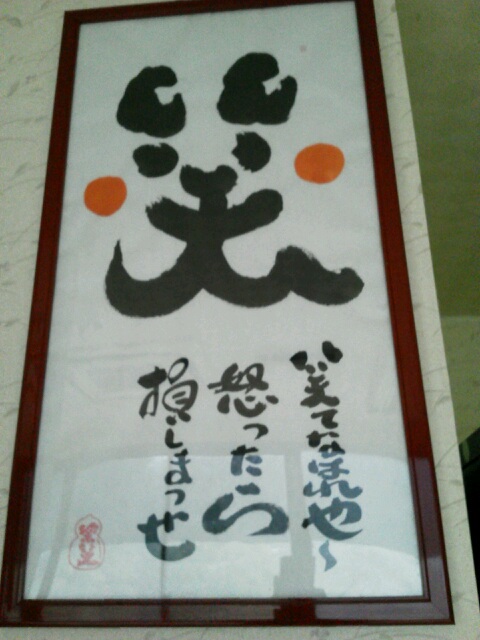 笑
笑てなはれや〜
怒ったら
損しまっせ